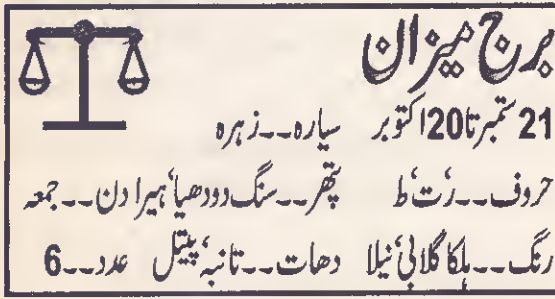 برج میزان
21 ستمبر تا 20 اکتوبر سیارہ۔۔زہرہ
حروف۔۔ر،ت،ط پتھر۔۔سنگ دودھیا،ہیرا دن۔۔جمعہ
رنگ۔۔ہلکا گلابی،نیلا دھات۔۔تانبہ،پیتل عدد۔۔6